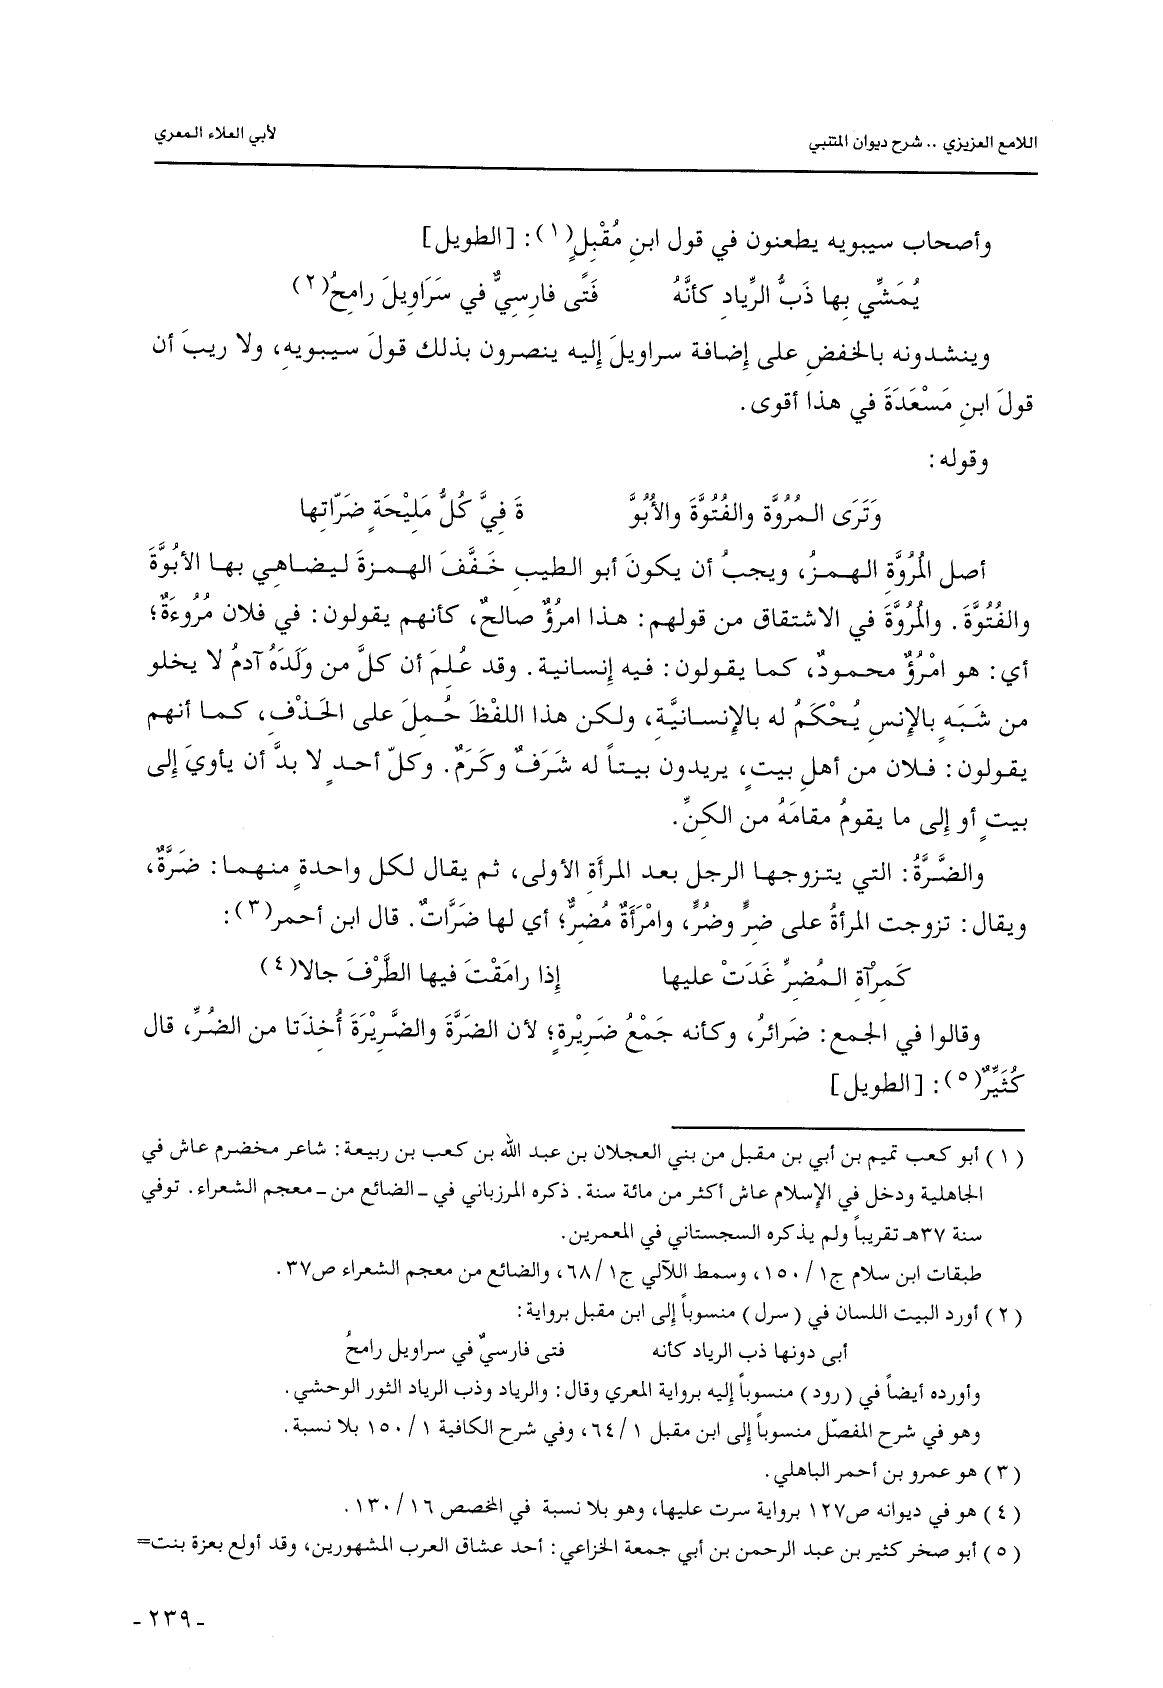 اللامع العزيزي .. شرح ديوان المتنبي
لأبي العلاء المعري
وأصحاب سيبويه يطعنون في قول ابنِ مُقْبِلٍ(١): [الطويل]
يُمَشِّي بِها ذَبُّ الرِّيادِ كأنَّهُ فَتًى فارِسِيٌّ في سَرَاوِيلَ رامِحُ(٢)
وينشدونه بالخفضِ على إضافة سراويلَ إليه ينصرون بذلك قولَ سيبويهِ، ولا ريبَ أن
قولَ ابنِ مَسْعَدَةَ في هذا أقوى.
وقوله:
وَتَرَى المُرُوَّة والفُتُوَّةَ والأُبُوَّ ةَ فِيَّ كُلُّ مَلِيْحَةٍ ضَرّاتِها
أصل المُرُوَّة الهمزُ، ويجبُ أن يكونَ أبو الطيبِ خَفَّفَ الهمزةَ ليضاهِي بها الأبُوَّةَ
والفُتُوَّةَ. والمُرُوَّةَ في الاشتقاق من قولهم: هذا امرؤٌ صالحٌ، كأنهم يقولون: في فلان مُرُوءَةٌ؛
أي: هو امْرُؤٌ محمودٌ، كما يقولون: فيه إنسانية. وقد عُلمَ أن كلَّ من وَلَدَهُ آدمُ لا يخلو
من شَبَهٍ بالإنسِ يُحْكَمُ له بالإنسانيَّةِ، ولكن هذا اللفْظَ حُمِلَ على الحَذْفِ، كما أنهم
يقولون: فلان من أهلِ بيتٍ، يريدون بيتاً له شَرَفٌ وكَرَمٌ. وكلّ أحدٍ لا بدَّ أن يأويَ إلى
بيتٍ أو إلى ما يقومُ مقامَهُ من الكنِّ.
والضَّرَّةُ: التي يتزوجها الرجل بعد المرأةِ الأولى، ثم يقال لكل واحدةٍ منهما: ضَرَّةٌ،
ويقال: تزوجت المرأةُ على ضرٍّ وضُرٍّ، وامْرَأَةٌ مُضرٌّ؛ أي لها ضَرَّاتٌ. قال ابن أحمر(٣):
كَمِرْآةِ المُضرِّ غَدَتْ عليها إذا رامَقْتَ فيها الطَّرْفَ جالا(٤)
وقالوا في الجمع: ضَرائرُ، وكأنه جَمْعُ ضَرِيْرةٍ؛ لأن الضَرَّةَ والضَّرِيْرَةَ أُخِذَتا من الضُرِّ، قال
كُثَيِّرٌ(٥): [الطويل]
(١) أبو كعب تميم بن أبي بن مقبل من بني العجلان بن عبد الله بن كعب بن ربيعة: شاعر مخضرم عاش في
الجاهلية ودخل في الإسلام عاش أكثر من مائة سنة. ذكره المرزباني في ـ الضائع من ـ معجم الشعراء. توفي
سنة ٣٧هـ تقريباً ولم يذكره السجستاني في المعمرين.
طبقات ابن سلام ج١/١٥٠، وسمط اللآلي ج١/٦٨، والضائع من معجم الشعراء ص٣٧.
(٢) أورد البيت اللسان في (سرل) منسوباً إلى ابن مقبل برواية:
أبى دونها ذب الرياد كأنه فتى فارسيٌّ في سراويل رامحُ
وأورده أيضاً في (رود) منسوباً إليه برواية المعري وقال: والرياد وذب الرياد الثور الوحشي.
وهو في شرح المفصّل منسوباً إلى ابن مقبل ١/٦٤، وفي شرح الكافية ١/١٥٠ بلا نسبة.
(٣) هو عمرو بن أحمر الباهلي.
(٤) هو في ديوانه ص١٢٧ برواية سرت عليها، وهو بلا نسبة في المخصص ١٦/١٣٠.
(٥) أبو صخر كثير بن عبد الرحمن بن أبي جمعة الخزاعي: أحد عشاق العرب المشهورين، وقد أولع بعزة بنت=
- ٢٣٩ -